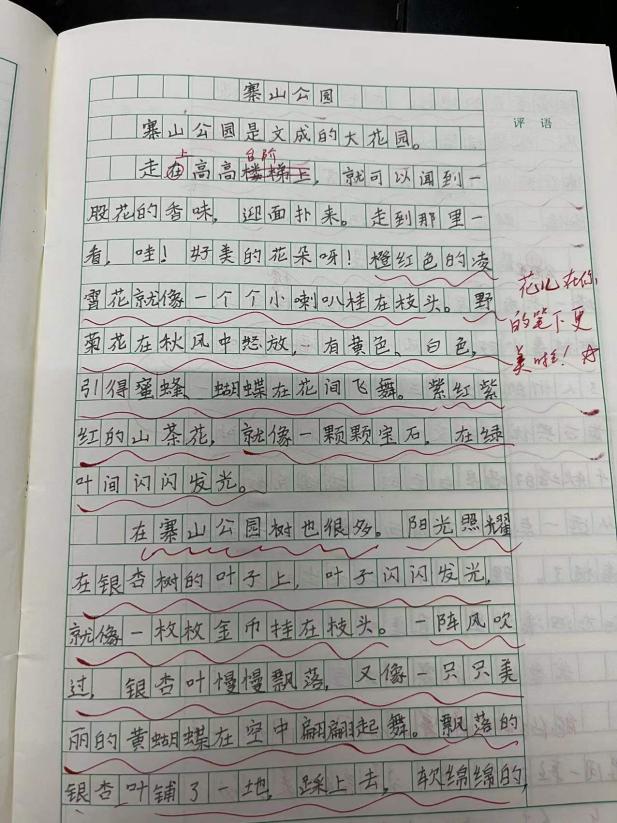 寨山公园
评语
寨山公园是文成的大花园。
上 台阶
走在高高楼梯上，就可以闻到一
股花的香味，迎面扑来。走到那里一
看，哇！好美的花朵呀！橙红色的凌
霄花就像一个个小喇叭挂在枝头。野
菊花在秋风中怒放，有黄色、白色，
引得蜜蜂、蝴蝶在花间飞舞。紫红紫
红的山茶花，就像一颗颗宝石，在绿
叶间闪闪发光。
花儿在你
的笔下更
美啦！
在寨山公园树也很多。阳光照耀
在银杏树的叶子上，叶子闪闪发光，
就像一枚枚金币挂在枝头。一阵风吹
过，银杏叶慢慢飘落，又像一只只美
丽的黄蝴蝶在空中翩翩起舞。飘落的
银杏叶铺了一地，踩上去，软绵绵的，